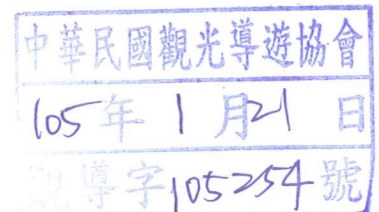 中華民國觀光導遊協會
105年1月21日
觀導字105254號